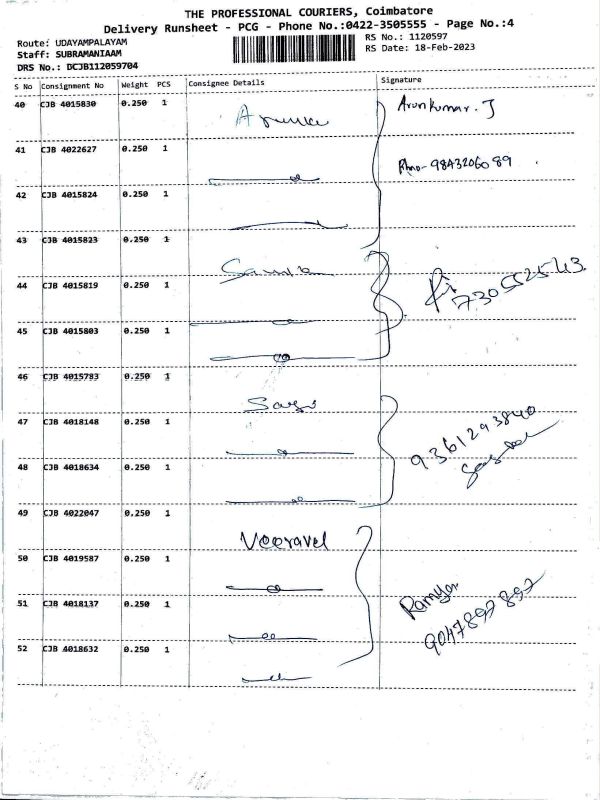 THE PROFESSIONAL COURIERS, Coimbatore
Delivery Runsheet - PCG - Phone No.:0422-3505555 - Page No.:4
Route: UDAYAMPALAYAM
RS No.: 1120597
Staff: SUBRAMANIAAM
RS Date: 18-Feb-2023
DRS No.: DCJB112059704
S No Consignment No Weight PCS Consignee Details Signature
40 CJB 4015830 0.250 1 Arunkumar. J
41 CJB 4022627 0.250 1 Phno- 9843206089
42 CJB 4015824 0.250 1
43 CJB 4015823 0.250 1
44 CJB 4015819 0.250 1 7305525543
45 CJB 4015803 0.250 1
46 CJB 4015783 0.250 1
47 CJB 4018148 0.250 1 9361293840
48 CJB 4018634 0.250 1
49 CJB 4022047 0.250 1
Veeravel
50 CJB 4019587 0.250 1
51 CJB 4018137 0.250 1 Ramya
9047897897
52 CJB 4018632 0.250 1